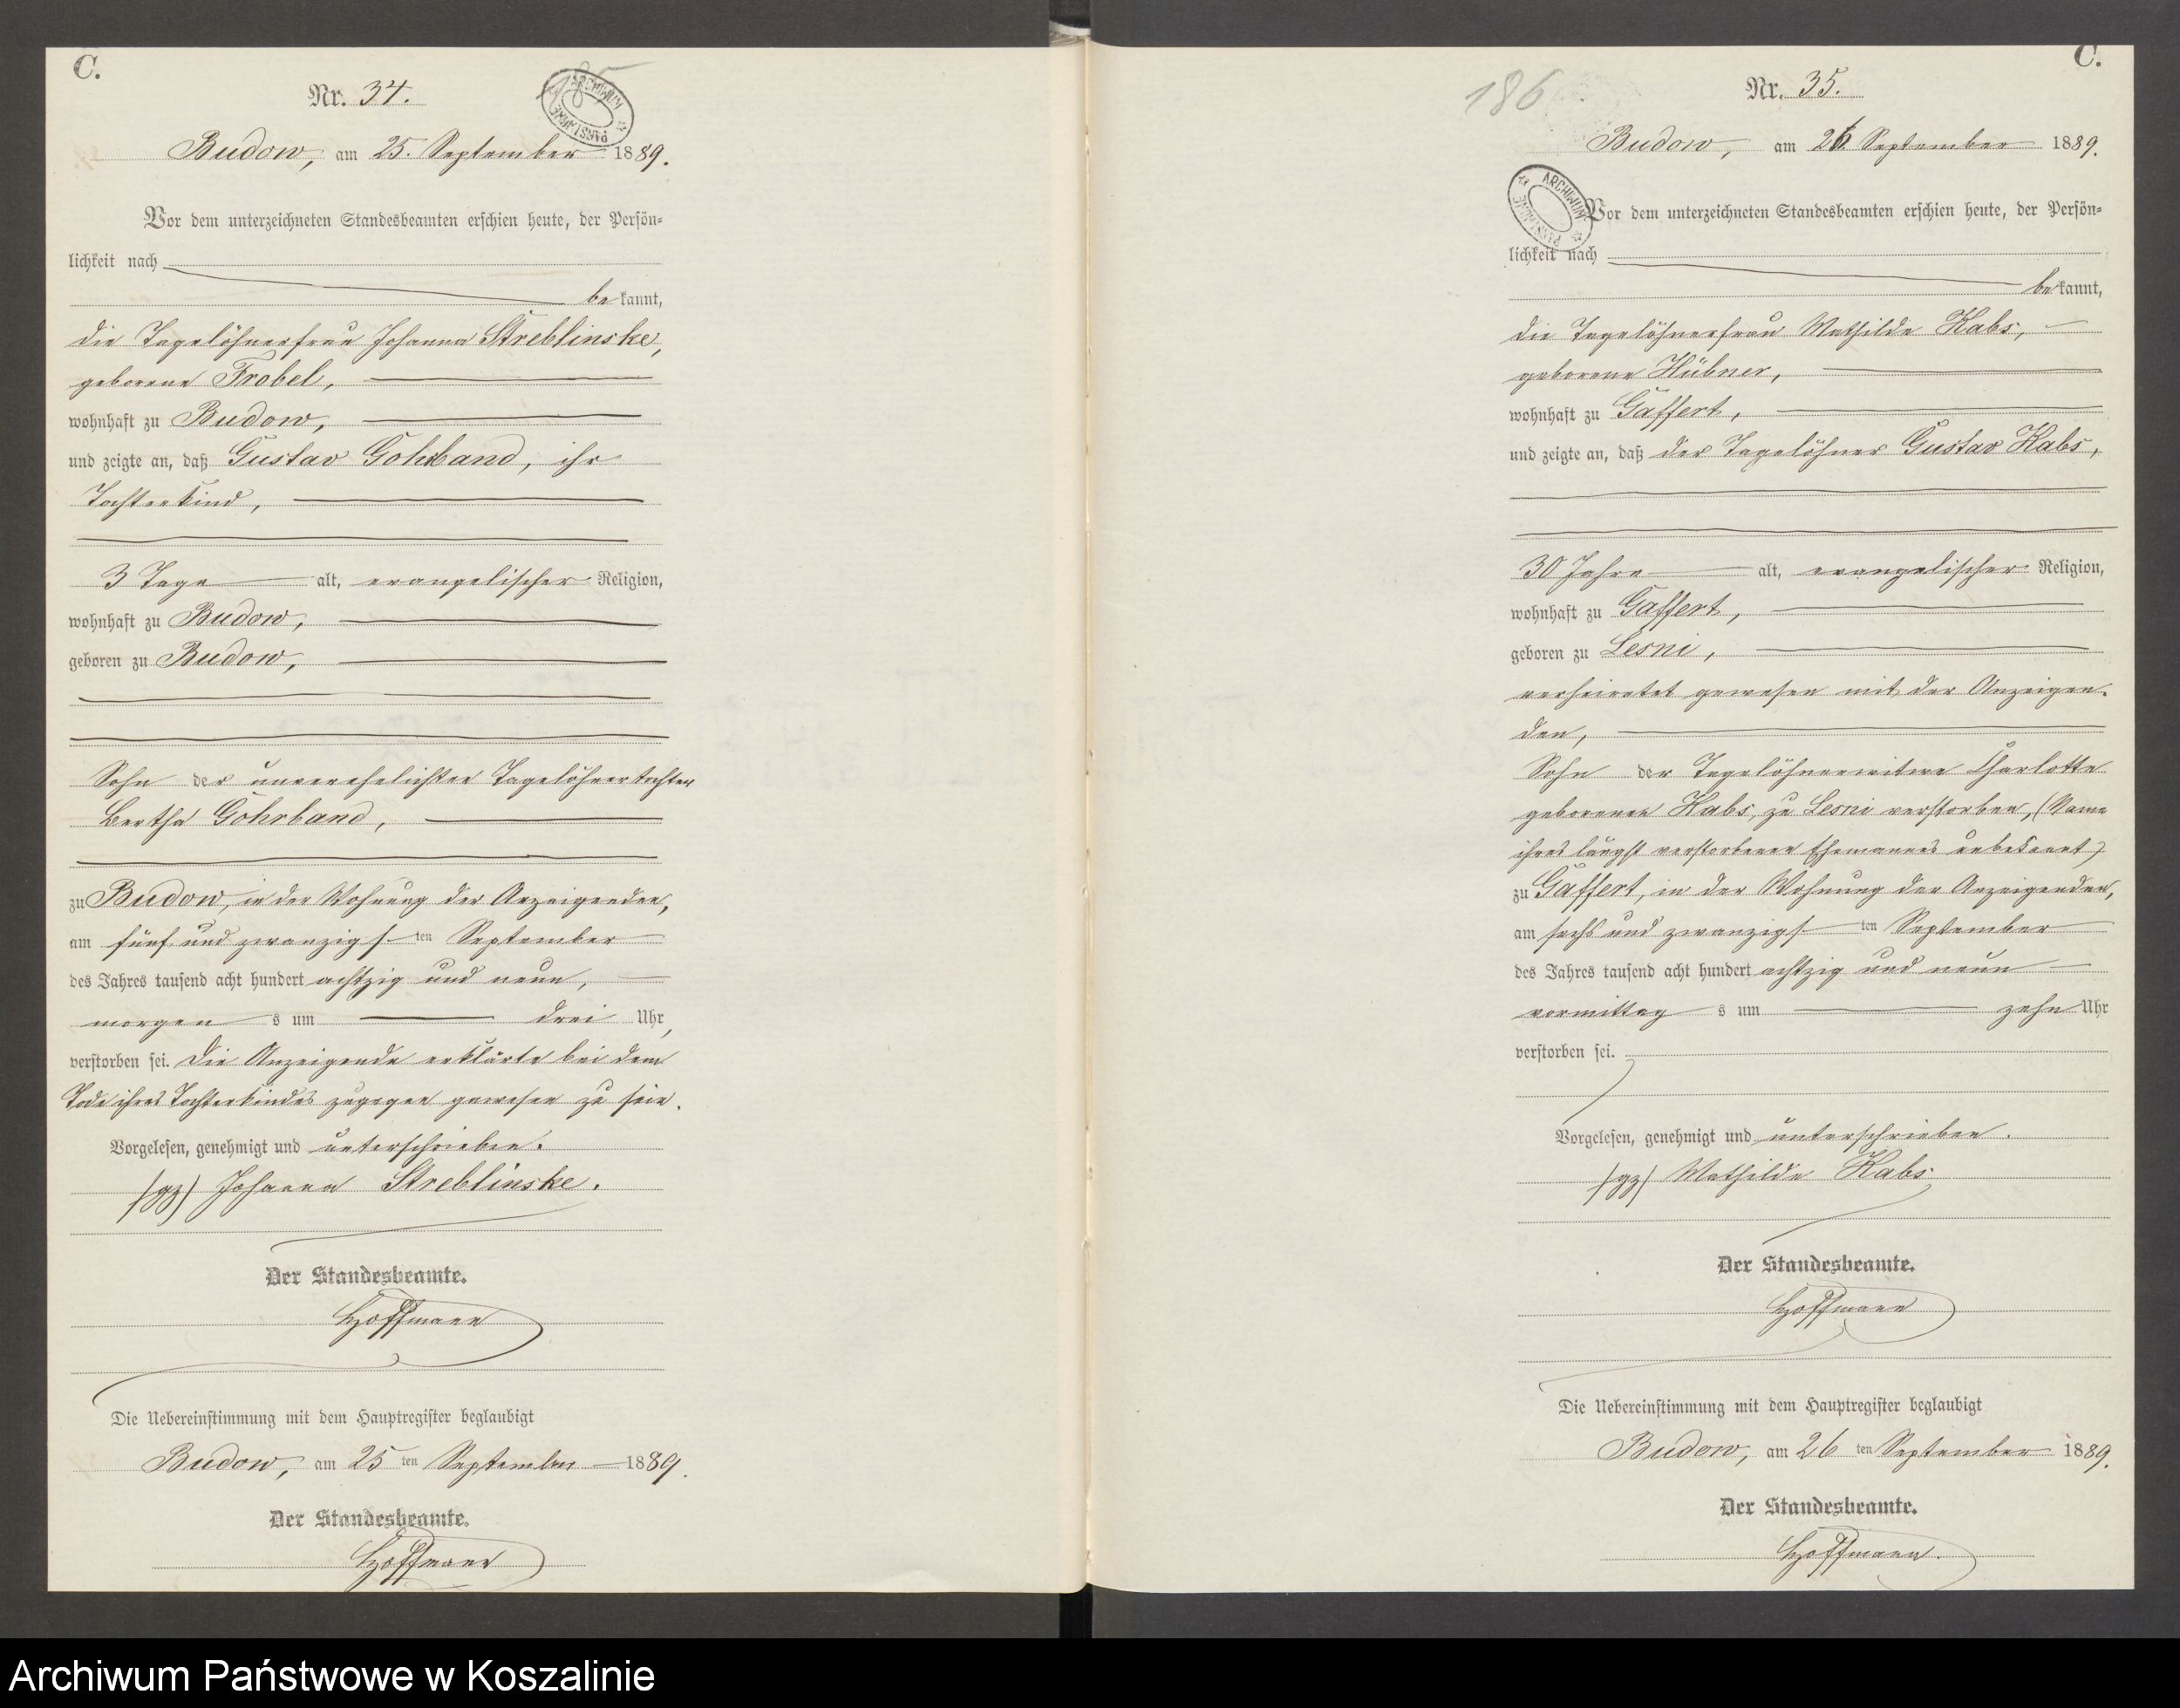 C.
Nr. 34.
185
ARCHIWUM PAŃSTWOWE
Budow, am 25. September 1889.
Vor dem unterzeichneten Standesbeamten erschien heute, der Persön-
lichkeit nach
bekannt,
die Tagelöhnerfrau Johanna Streblinske,
geborene Frobel,
wohnhaft zu Budow,
und zeigte an, daß Gustav Gohrband, ihr
Tochterkind,
3 Tage alt, evangelischer Religion,
wohnhaft zu Budow,
geboren zu Budow,
Sohn der unverehelichten Tagelöhnertochter
Bertha Gohrband,
zu Budow, in der Wohnung der Anzeigenden,
am fünf und zwanzigsten September
des Jahres tausend acht hundert achtzig und neun,
morgens um drei Uhr,
verstorben sei. Die Anzeigende erklärte bei dem
Tode ihres Tochterkindes zugegen gewesen zu sein.
Vorgelesen, genehmigt und unterschrieben.
(gz) Johanna Streblinske.
Der Standesbeamte.
Hoffmann
Die Uebereinstimmung mit dem Hauptregister beglaubigt
Budow, am 25ten September 1889.
Der Standesbeamte.
Hoffmann
C.
186
Nr. 35.
Budow, am 26 September 1889.
ARCHIWUM PAŃSTWOWE
Vor dem unterzeichneten Standesbeamten erschien heute, der Persön-
lichkeit nach
bekannt,
die Tagelöhnerfrau Mathilde Kabs,
geborene Hübner,
wohnhaft zu Gaffert,
und zeigte an, daß der Tagelöhner Gustav Kabs,
30 Jahre alt, evangelischer Religion,
wohnhaft zu Gaffert,
geboren zu Lesni,
verheiratet gewesen mit der Anzeigen-
den,
Sohn der Tagelöhnerwitwe Charlotte
geborenen Kabs, zu Lesni verstorben, (Name
ihres längst verstorbenen Ehemannes unbekannt)
zu Gaffert, in der Wohnung der Anzeigenden,
am sechs und zwanzigsten September
des Jahres tausend acht hundert achtzig und neun
vormittags um zehn Uhr
verstorben sei.
Vorgelesen, genehmigt und unterschrieben.
(gz) Mathilde Kabs
Der Standesbeamte.
Hoffmann
Die Uebereinstimmung mit dem Hauptregister beglaubigt
Budow, am 26ten September 1889.
Der Standesbeamte.
Hoffmann.
Archiwum Państwowe w Koszalinie